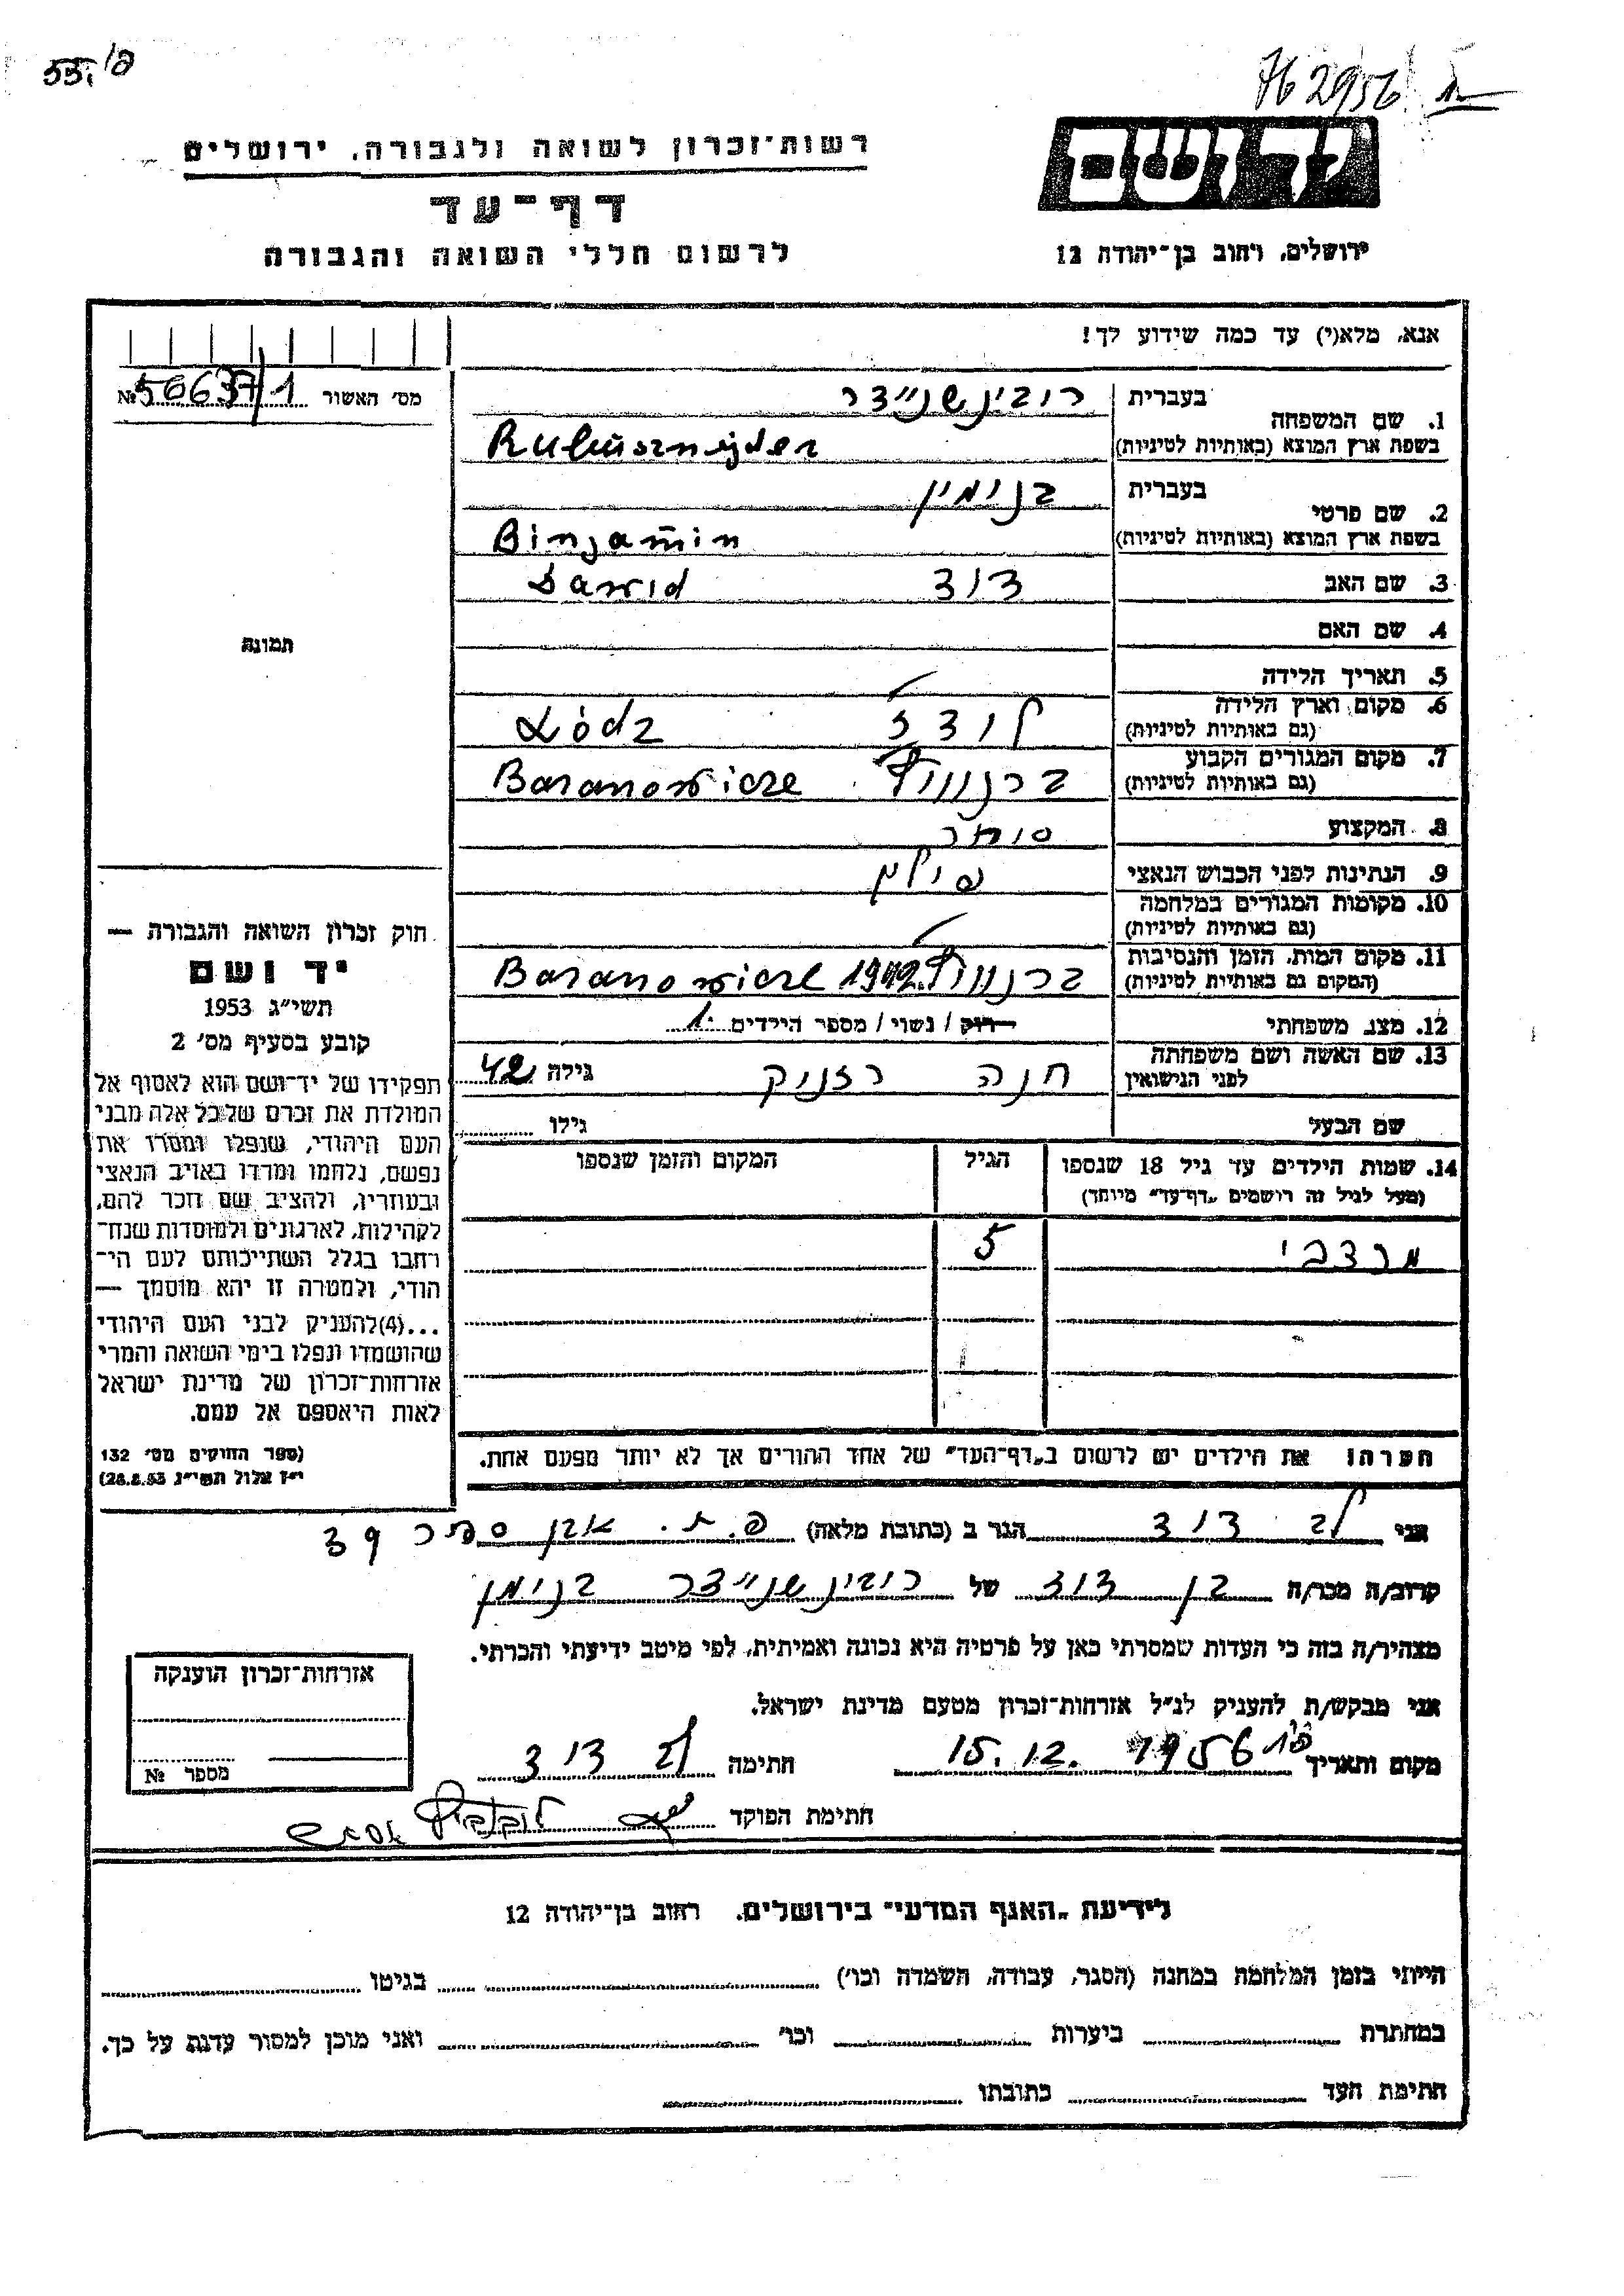 762956
יד ושם
ירושלים, רחוב בן־יהודה 12
רשות־זכרון לשואה ולגבורה, ירושלים
דף־עד
לרשום חללי השואה והגבורה
אנא, מלא(י) עד כמה שידוע לך!
מס׳ האשור 50637/1 №
1. שם המשפחה בעברית רובינשניידר
בשפת ארץ המוצא (באותיות לטיניות) Rubinsznejder
2. שם פרטי בעברית בנימין
בשפת ארץ המוצא (באותיות לטיניות) Binjamin
3. שם האב דוד Dawid
4. שם האם
5. תאריך הלידה
6. מקום וארץ הלידה לודז Łódz
(גם באותיות לטיניות)
7. מקום המגורים הקבוע ברנוויץ Baranowicze
(גם באותיות לטיניות)
8. המקצוע סוחר
9. הנתינות לפני הכבוש הנאצי פולין
10. מקומות המגורים במלחמה
(גם באותיות לטיניות)
11. מקום המות, הזמן והנסיבות ברנוויץ Baranowicze 1942
(המקום גם באותיות לטיניות)
12. מצב משפחתי רווק / נשוי / מספר הילדים 1
13. שם האשה ושם משפחתה חנה רזניק גילה 42
לפני הנישואין
שם הבעל גילו
14. שמות הילדים עד גיל 18 שנספו הגיל המקום והזמן שנספו
(מעל לגיל זה רושמים „דף־עד״ מיוחד)
מרדכי 5
הערה! את הילדים יש לרשום ב„דף־העד״ של אחד ההורים אך לא יותר מפעם אחת.
תמונה
חוק זכרון השואה והגבורה —
יד ושם
תשי״ג 1953
קובע בסעיף מס׳ 2
תפקידו של יד־ושם הוא לאסוף אל
המולדת את זכרם של כל אלה מבני
העם היהודי, שנפלו ומסרו את
נפשם, נלחמו ומרדו באויב הנאצי
ובעוזריו, ולהציב שם וזכר להם,
לקהילות, לארגונים ולמוסדות שנח־
רבו בגלל השתייכותם לעם הי־
הודי, ולמטרה זו יהא מוסמך —
...(4)להעניק לבני העם היהודי
שהושמדו ונפלו בימי השואה והמרי
אזרחות־זכרון של מדינת ישראל
לאות היאספם אל עמם.
(ספר החוקים מס׳ 132
י״ז אלול תשי״ג 28.8.53)
אני לב דוד הגר ב (כתובת מלאה) פ.ת. אבן ספיר 39
קרוב/ה מכר/ה בן דוד של רובינשניידר בנימין
מצהיר/ה בזה כי העדות שמסרתי כאן על פרטיה היא נכונה ואמיתית, לפי מיטב ידיעתי והכרתי.
אני מבקש/ת להעניק לנ״ל אזרחות־זכרון מטעם מדינת ישראל.
מקום ותאריך 15.12.1956 חתימה לב דוד
חתימת הפוקד
אזרחות־זכרון הוענקה
מספר №
לידיעת „האגף המדעי״ בירושלים, רחוב בן־יהודה 12
הייתי בזמן המלחמה במחנה (הסגר, עבודה, השמדה וכו׳) בגיטו
במחתרת ביערות וכו׳ ואני מוכן למסור עדות על כך.
חתימת העד כתובתו